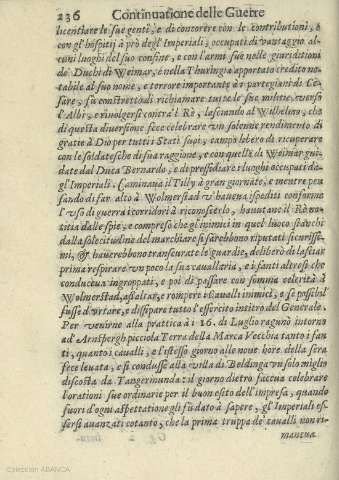 236 Continuatione delle Guerre
licentiare le sue genti, e di concorere con le contributioni, e
con gl'hospitij à prò degl'Imperiali, occupati di vantaggio al-
cuni luoghi del suo confine, e con l'armi sue nelle giuriditioni
de Duchi di Weimar, e nella Thuringia apportato credito no-
tabile al suo nome, e terrore importante à i partegiani di Ce-
sare, fu constretto di richiamare tutte le sue militie verso
l'Albi, e rivolgersi contra'l Rè, lasciando al Wilhelmo, che
di questa diversione fece celebrare un solenne rendimento di
gratie à Dio per tutti i Stati suoi, campo libero di ricuperare
con le soldatesche di sua raggione, e con quelle di Weimar gui-
date dal Duca Bernardo, e di pressidiare i luoghi occupati da-
gl'Imperiali. Caminava il Tilly à gran giornate, e mentre pen
sando di far alto à Wolmerstad v'haveva spediti conforme
l'uso di guerra i corridori à riconoscerlo, havutane il Rè no-
titia dalle spie, e compreso che gl'inimici in quel luoco stanchi
dalla solecitudine del marchiare si sarebbono riputati sicurissi-
mi, & haverebbono trascurate le guardie, deliberò di lasciar
prima respirare un poco la sua cavallaria, e i fanti altresi che
conduceva ingroppati, e poi di passare con somma celerità à
Wolmerstad, assaltar, e rompere i Cavalli inimici, e se possibil
fusse d'urtare, e dissipare tutto l'essercito intiero del Generale.
Per venirne alla prattica à i 26. di Luglio ragunò intorno
ad Arnspergh picciola Terra della Marca Vecchia tanto i fan
ti, quanto i cavalli, e l'istesso giorno alle nove hore della sera
fece levata, e si condusse alla villa di Beldinga un solo miglio
discosta da Tangermunda: il giorno dietro faceva celebrare
l'orationi sue ordinarie per il buon esito dell'impresa, quando
fuori d'ogni aspettatione gli fù dato à sapere, gl'Imperiali es-
sersi avanzati cotanto, che la prima truppa de' cavalli non ri-
maneva
Colección ABANCA